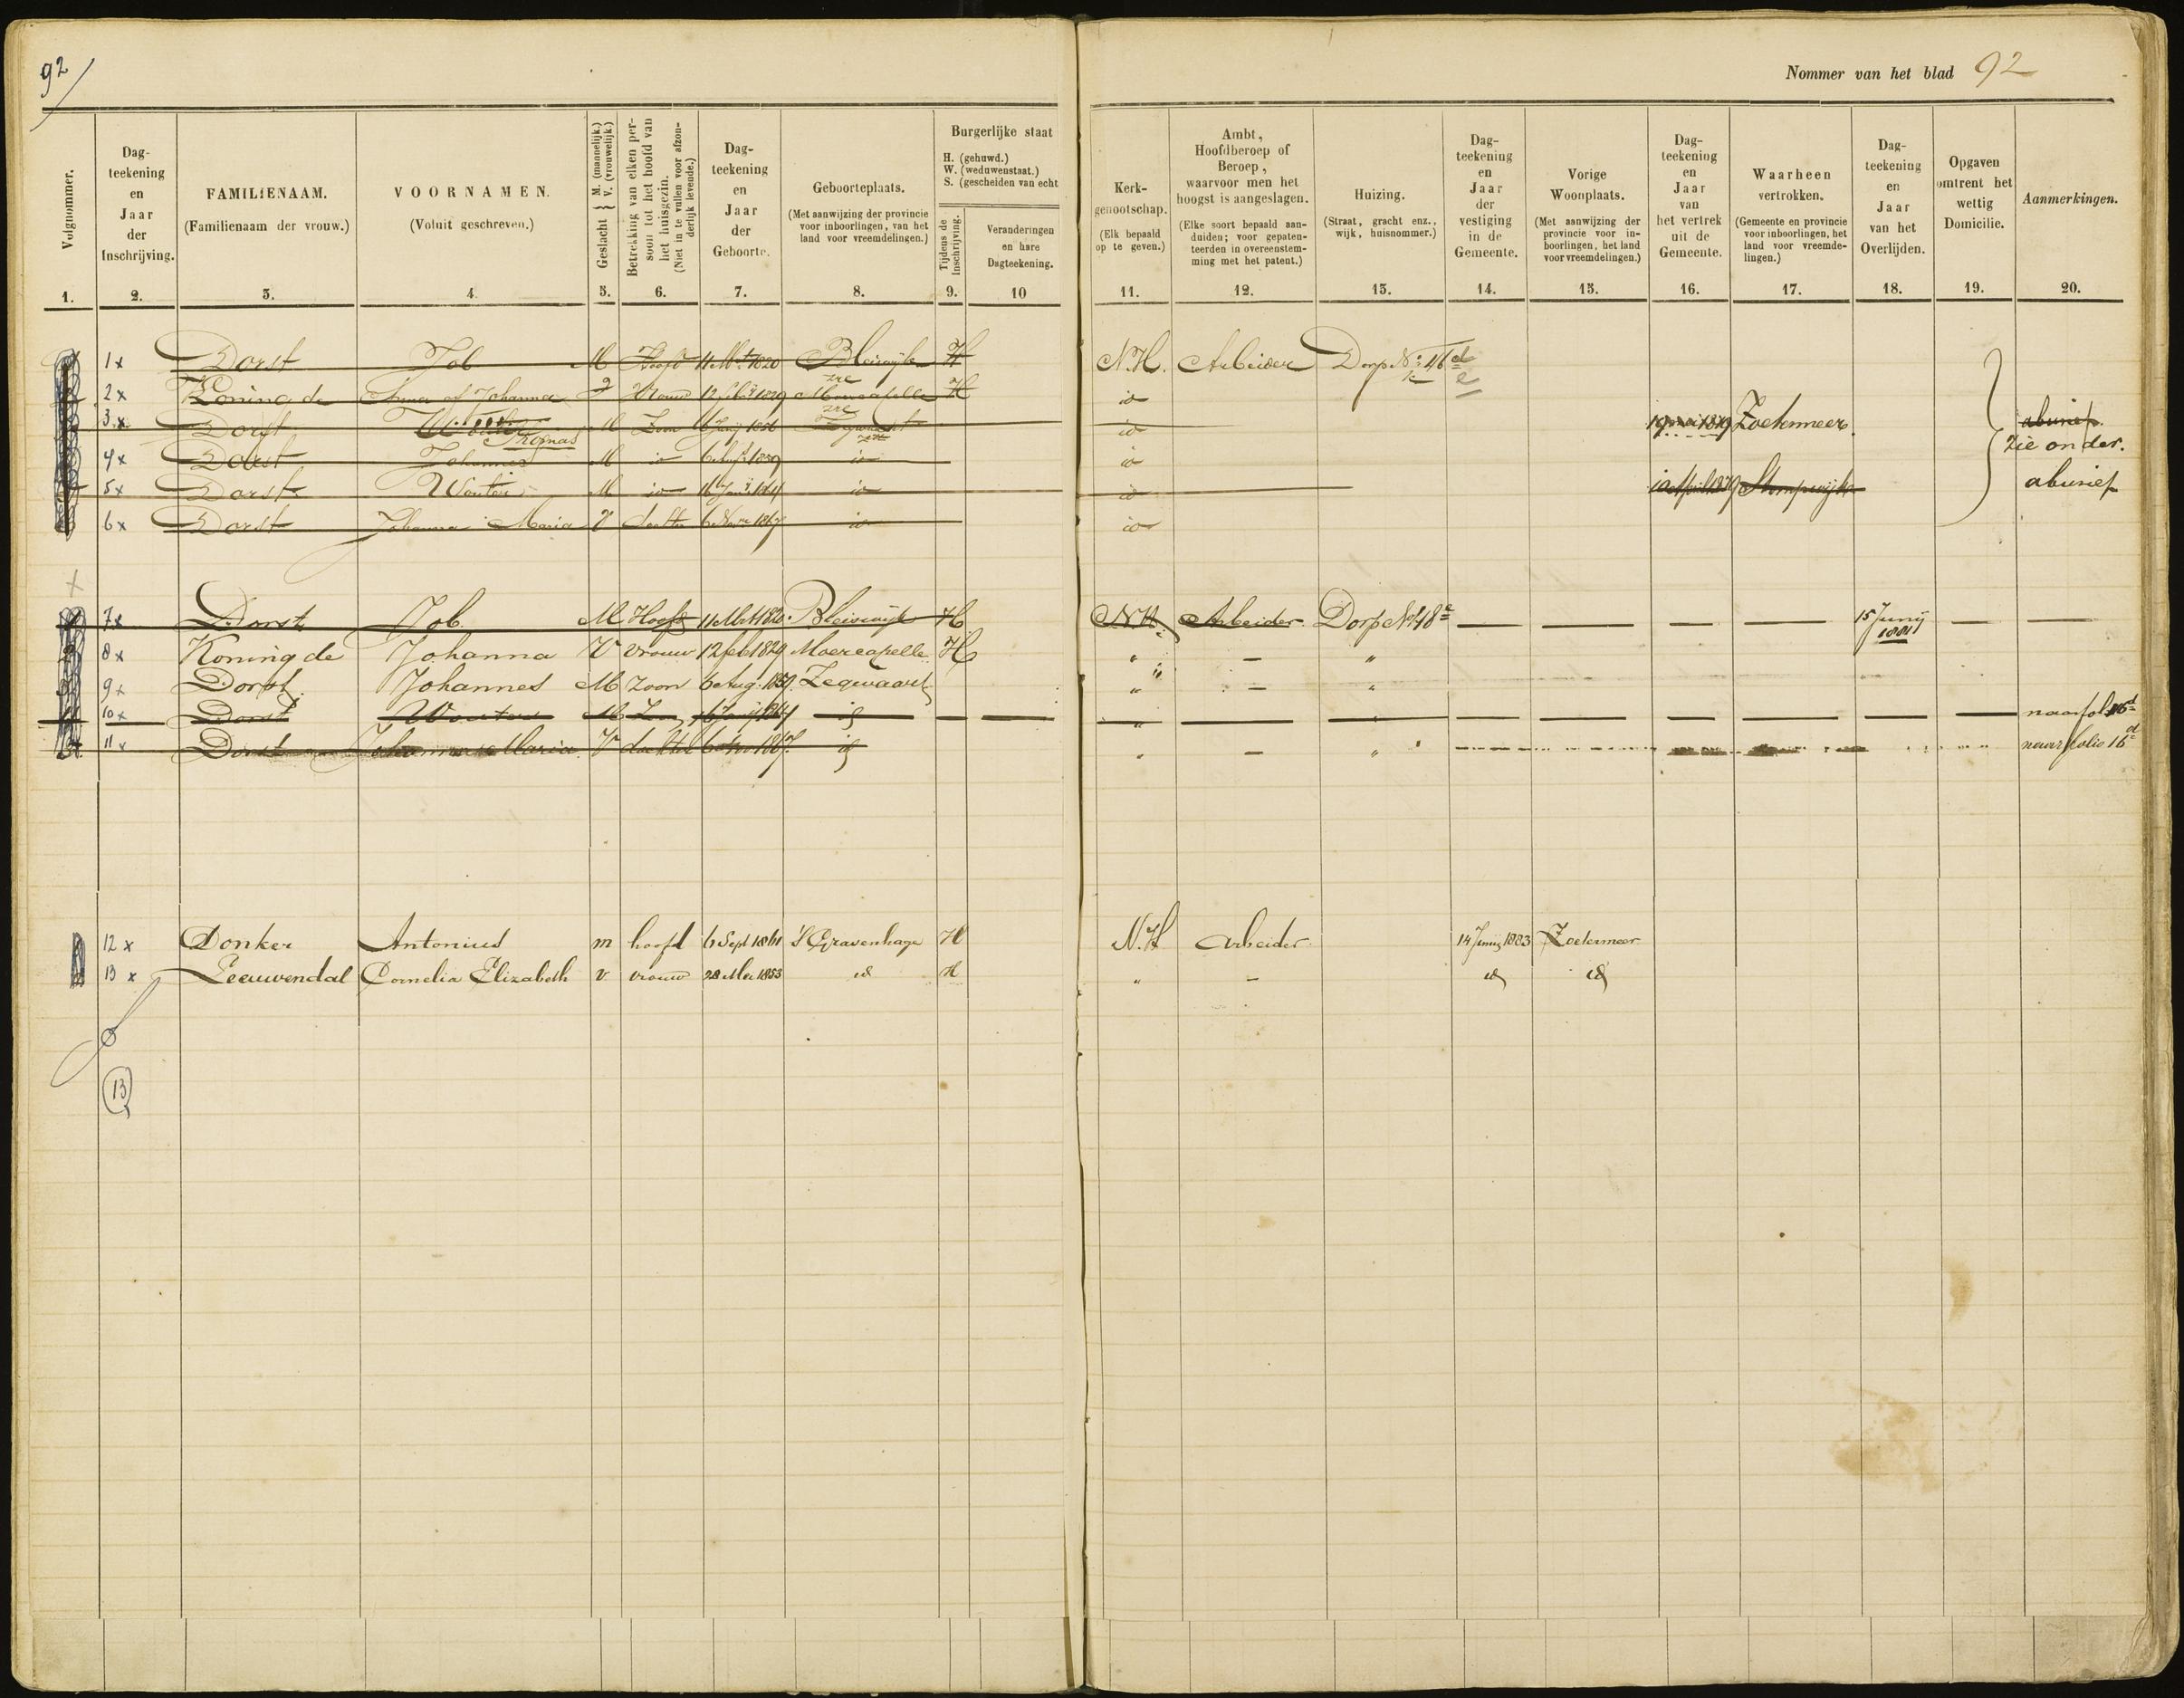 92
Nommer van het blad 92
Volgnommer.
Dag-
teekening
en
Jaar
der
Inschrijving.
FAMILIENAAM.
(Familienaam der vrouw.)
VOORNAMEN.
(Voluit geschreven.)
Geslacht { M. (mannelijk.) V. (vrouwelijk.)
Betrekking van elken per-
soon tot het hoofd van
het huisgezin.
(Niet in te vullen voor afzon-
derlijk levende.)
Dag-
teekening
en
Jaar
der
Geboorte.
Geboorteplaats.
(Met aanwijzing der provincie
voor inboorlingen, van het
land voor vreemdelingen.)
Burgerlijke staat
H. (gehuwd.)
W. (weduwenstaat.)
S. (gescheiden van echt
Tijdens de
Inschrijving.
Veranderingen
en hare
Dagteekening.
Kerk-
genootschap.
(Elk bepaald
op te geven.)
Ambt,
Hoofdberoep of
Beroep,
waarvoor men het
hoogst is aangeslagen.
(Elke soort bepaald aan-
duiden; voor gepaten-
teerden in overeenstem-
ming met het patent.)
Huizing.
(Straat, gracht enz.,
wijk, huisnommer.)
Dag-
teekening
en
Jaar
der
vestiging
in de
Gemeente.
Vorige
Woonplaats.
(Met aanwijzing der
provincie voor in-
boorlingen, het land
voor vreemdelingen.)
Dag-
teekening
en
Jaar
van
het vertrek
uit de
Gemeente.
Waarheen
vertrokken.
(Gemeente en provincie
voor inboorlingen, het
land voor vreemde-
lingen.)
Dag-
teekening
en
Jaar
van het
Overlijden.
Opgaven
omtrent het
wettig
Domicilie.
Aanmerkingen.
1. 2. 3. 4. 5. 6. 7. 8. 9. 10 11. 12. 13. 14. 15. 16. 17. 18. 19. 20.
1x Dorst Job M Hoofd 11 Mrt 1820 Bleiswijk H N.H. Arbeider Dorp No
2x Koning de Anna of Johanna Vrouw 12 1829 Moercapelle H io
3x Dorst Wouter Thomas M Zoon 1856 Zegwaart io 1879 Zoetermeer abusief
zie onder.
4x Dorst Johannes M io 6 Aug 1859 io io
5x Dorst Wouter M io 16 io io 10 April 1879 Stompwijk abusief
6x Dorst Johanna Maria V dochter 6 1867 io io
7x Dorst Job. M Hoofd 11 Mrt 1820. Bleiswijk H N.H. Arbeider. Dorp No 48e 15 Junij
1881
8x Koning de Johanna V vrouw 12 feb 1829 Moercapelle H " — "
9x Dorst Johannes M Zoon 6 Aug. 1859. Zegwaart " — "
10x Dorst Wouter M Zoon 16 id " naar fol 16d
11x Dorst Johanna Maria V dochter 6 1867. id " — " naar folio 16d
12x Donker Antonius m hoofd 6 Sept 1861 S'Gravenhage H N.H Arbeider 14 Junij 1883 Zoetermeer
13x Leeuwendal Cornelia Elizabeth v vrouw 28 Mei 1853 id H " — id id
13